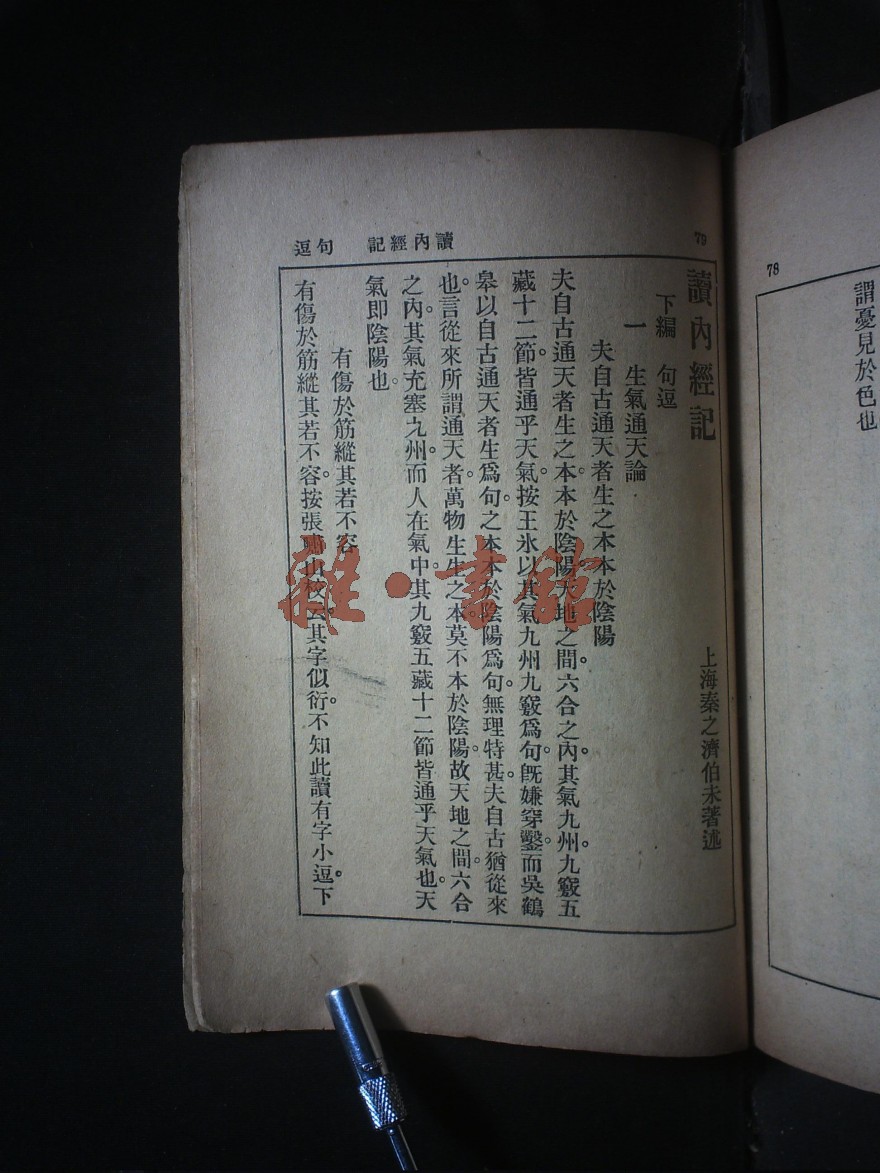 78
謂憂見於色也
79
讀內經記　句逗
讀內經記
上海秦之濟伯未著述
下編　句逗
一　生氣通天論
夫自古通天者生之本本於陰陽
夫自古通天者生之本本於陰陽。天地之間。六合之內。其氣九州。九竅五
藏十二節。皆通乎天氣。按王氷以其氣九州九竅爲句。旣嫌穿鑿。而吳鶴
皋以自古通天者生爲句。之本本於陰陽爲句。無理特甚。夫自古猶從來
也。言從來所謂通天者。萬物生生之本。莫不本於陰陽。故天地之間。六合
之內。其氣充塞九州。而人在氣中。其九竅五藏十二節皆通乎天氣也。天
氣即陰陽也。
有傷於筋縱其若不容
有傷於筋縱。其若不容。按張嘯山校云。其字似衍。不知此讀有字小逗。下
雜·書館